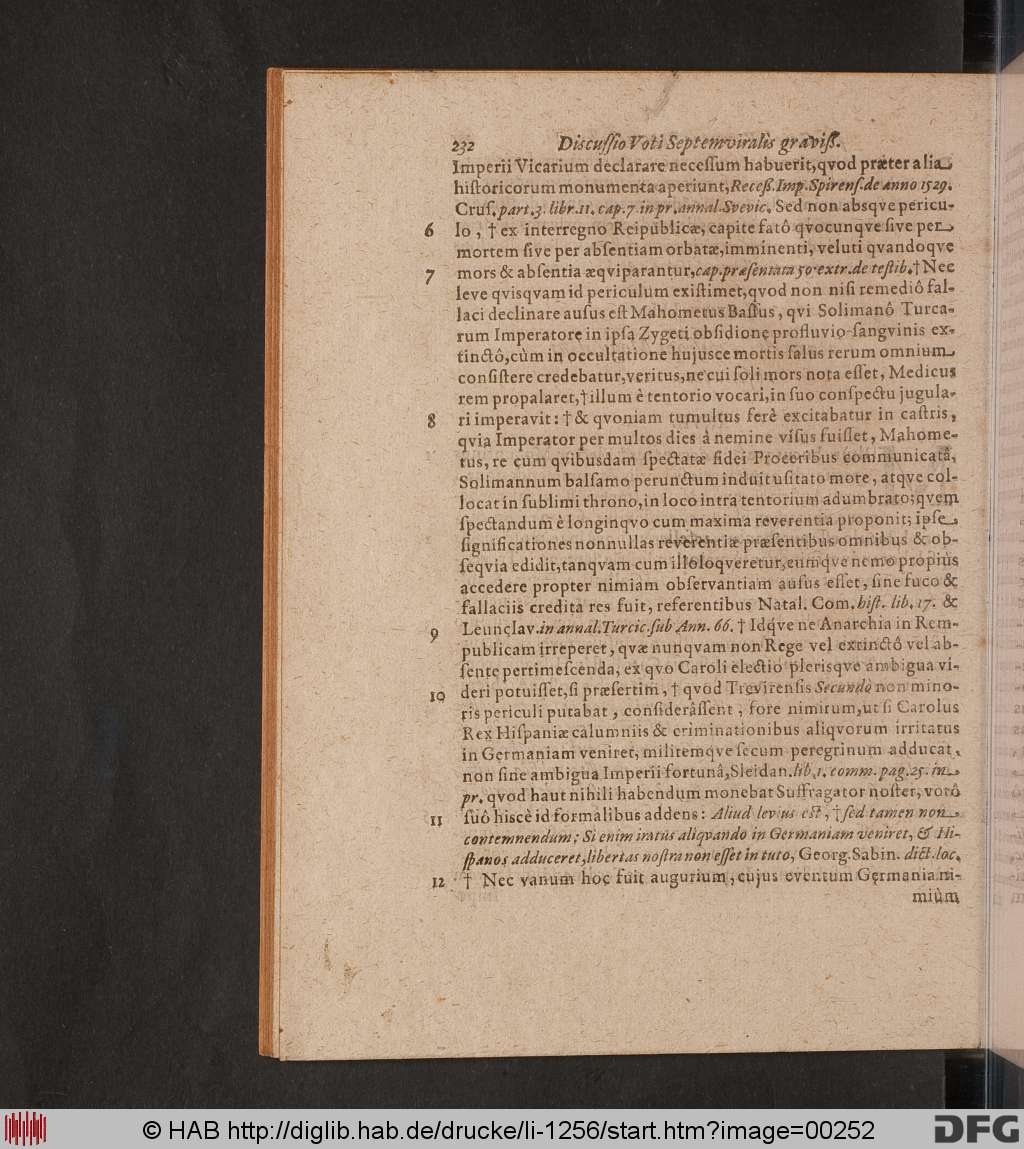 232 Discuſſio Voti Septemviralis graviß.
Imperii Vicarium declarare neceſſum habuerit, qvod præter alia
hiſtoricorum monumenta aperiunt, Receß. Imp. Spirenſ. de Anno 1529.
Cruſ. part. 3. libr. 11. cap. 7. in pr. annal. Svevic. Sed non absqve pericu-
6 lo, † ex interregno Reipublicæ, capite fatô qvocunqve ſive per
mortem ſive per abſentiam orbatæ, imminenti, veluti qvandoqve
7 mors & abſentia æqviparantur, cap. præſentata 50. extr. de teſtib. † Nec
leve qvisqvam id periculum exiſtimet, qvod non niſi remediô fal-
laci declinare auſus eſt Mahometus Baſſus, qvi Solimanô Turca-
rum Imperatore in ipſa Zygeti obſidione profluvio ſangvinis ex-
tinctô, cùm in occultatione hujusce mortis ſalus rerum omnium
conſiſtere credebatur, veritus, ne cui ſoli mors nota eſſet, Medicus
rem propalaret, † illum è tentorio vocari, in ſuo conſpectu jugula-
8 ri imperavit: † & qvoniam tumultus ferè excitabatur in caſtris,
qvia Imperator per multos dies à nemine viſus fuiſſet, Mahome-
tus, re cum qvibusdam ſpectatæ fidei Proceribus communicatâ,
Solimannum balſamo perunctum induit uſitato more, atqve col-
locat in ſublimi throno, in loco intra tentorium adumbrato; qvem
ſpectandum è longinqvo cum maxima reverentia proponit; ipſe
ſignificationes nonnullas reverentiæ præſentibus omnibus & ob-
ſeqvia edidit, tanqvam cum illo loqveretur, eumqve nemo propius
accedere propter nimiam obſervantiam auſus eſſet, ſine fuco &
fallaciis credita res fuit, referentibus Natal. Com. hiſt. lib. 17. &
9 Leunclav. in annal. Turcic. ſub Ann. 66. † Idqve ne Anarchia in Rem-
publicam irreperet, qvæ nunqvam non Rege vel extinctô vel ab-
ſente pertimeſcenda, ex qvo Caroli electio plerisqve ambigua vi-
10 deri potuiſſet, ſi præſertim, † qvod Trevirenſis Secundò non mino-
ris periculi putabat, conſiderâſſent, fore nimirum, ut ſi Carolus
Rex Hiſpaniæ calumniis & criminationibus aliqvorum irritatus
in Germaniam veniret, militemqve ſecum peregrinum adducat,
non ſine ambigua Imperii fortunâ, Sleidan. lib. 1. comm. pag. 25. in
pr. qvod haut nihili habendum monebat Suffragator noſter, votô
11 ſuô hiscè id formalibus addens: Aliud levius eſt, † ſed tamen non
contemnendum; Si enim iratus aliqvando in Germaniam veniret, & Hi-
ſpanos adduceret, libertas noſtra non eſſet in tuto, Georg. Sabin. dict. loc.
12 † Nec vanum hoc fuit augurium, cujus eventum Germania ni-
miùm
© HAB http://diglib.hab.de/drucke/li-1256/start.htm?image=00252
DFG